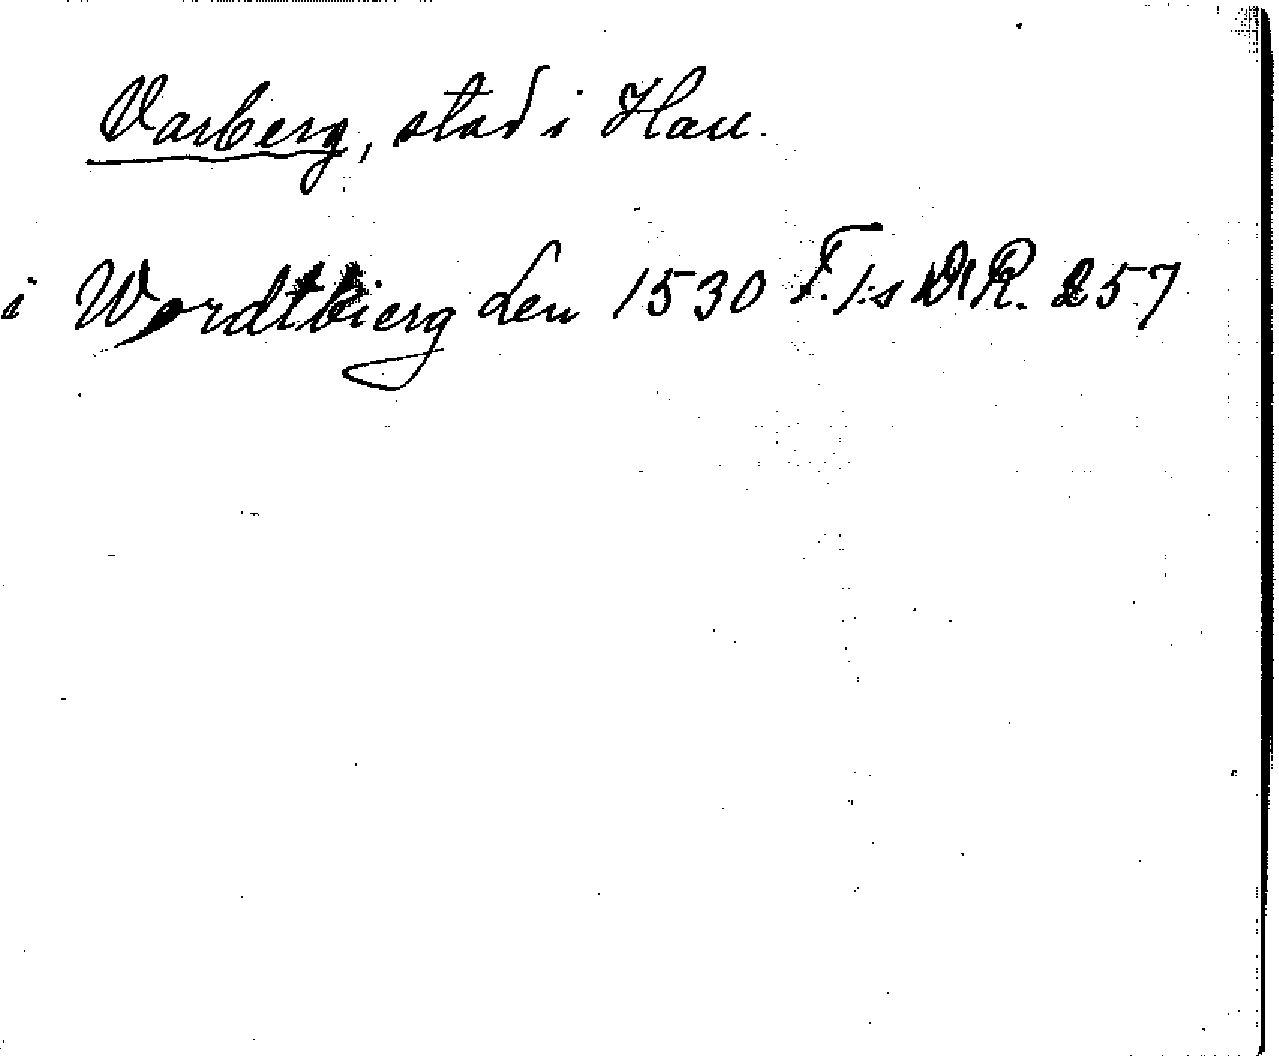 Varberg, stad i Hall.
i Wordtbierg len 1530 F. I:s DR. 257